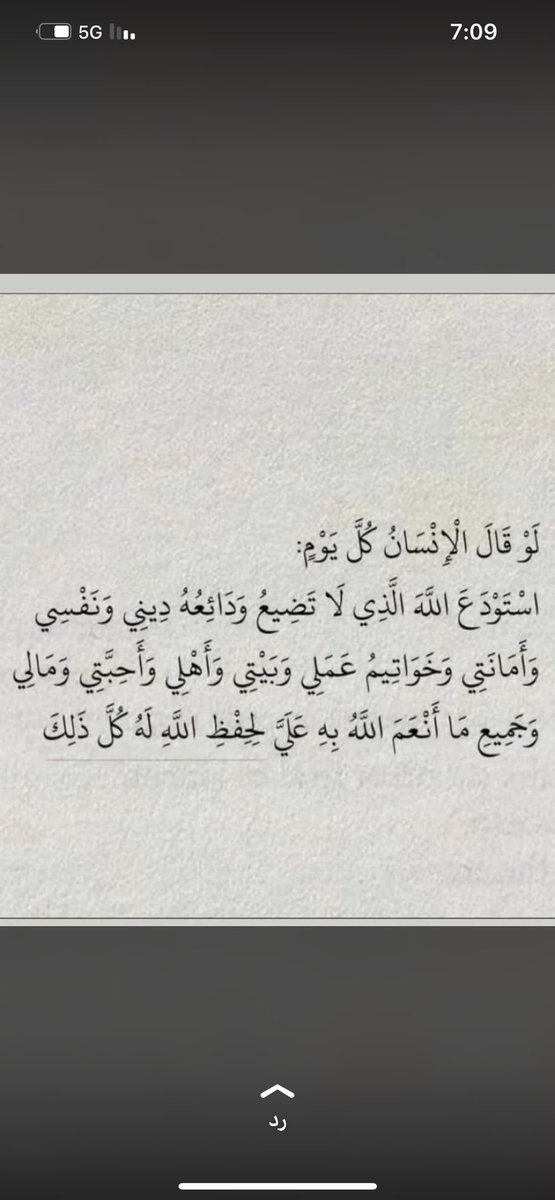 5G
7:09
لَوْ قَالَ الْإِنْسَانُ كُلَّ يَوْمٍ:
اسْتَوْدَعَ اللَّهَ الَّذِي لَا تَضِيعُ وَدَائِعُهُ دِينِي وَنَفْسِي
وَأَمَانَتِي وَخَوَاتِيمُ عَمَلِي وَبَيْتِي وَأَهْلِي وَأَحِبَّتِي وَمَالِي
وَجَمِيعِ مَا أَنْعَمَ اللَّهُ بِهِ عَلَيَّ لِحِفْظِ اللَّهِ لَهُ كُلَّ ذَلِكَ
رد